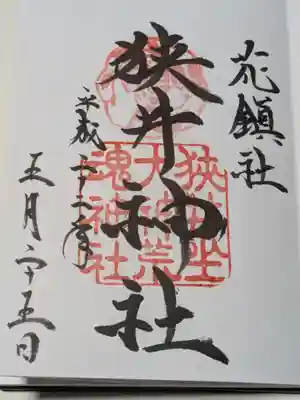 花鎮社
狭井神社
狭井坐
大神荒
魂神社
平成
五月二十五日